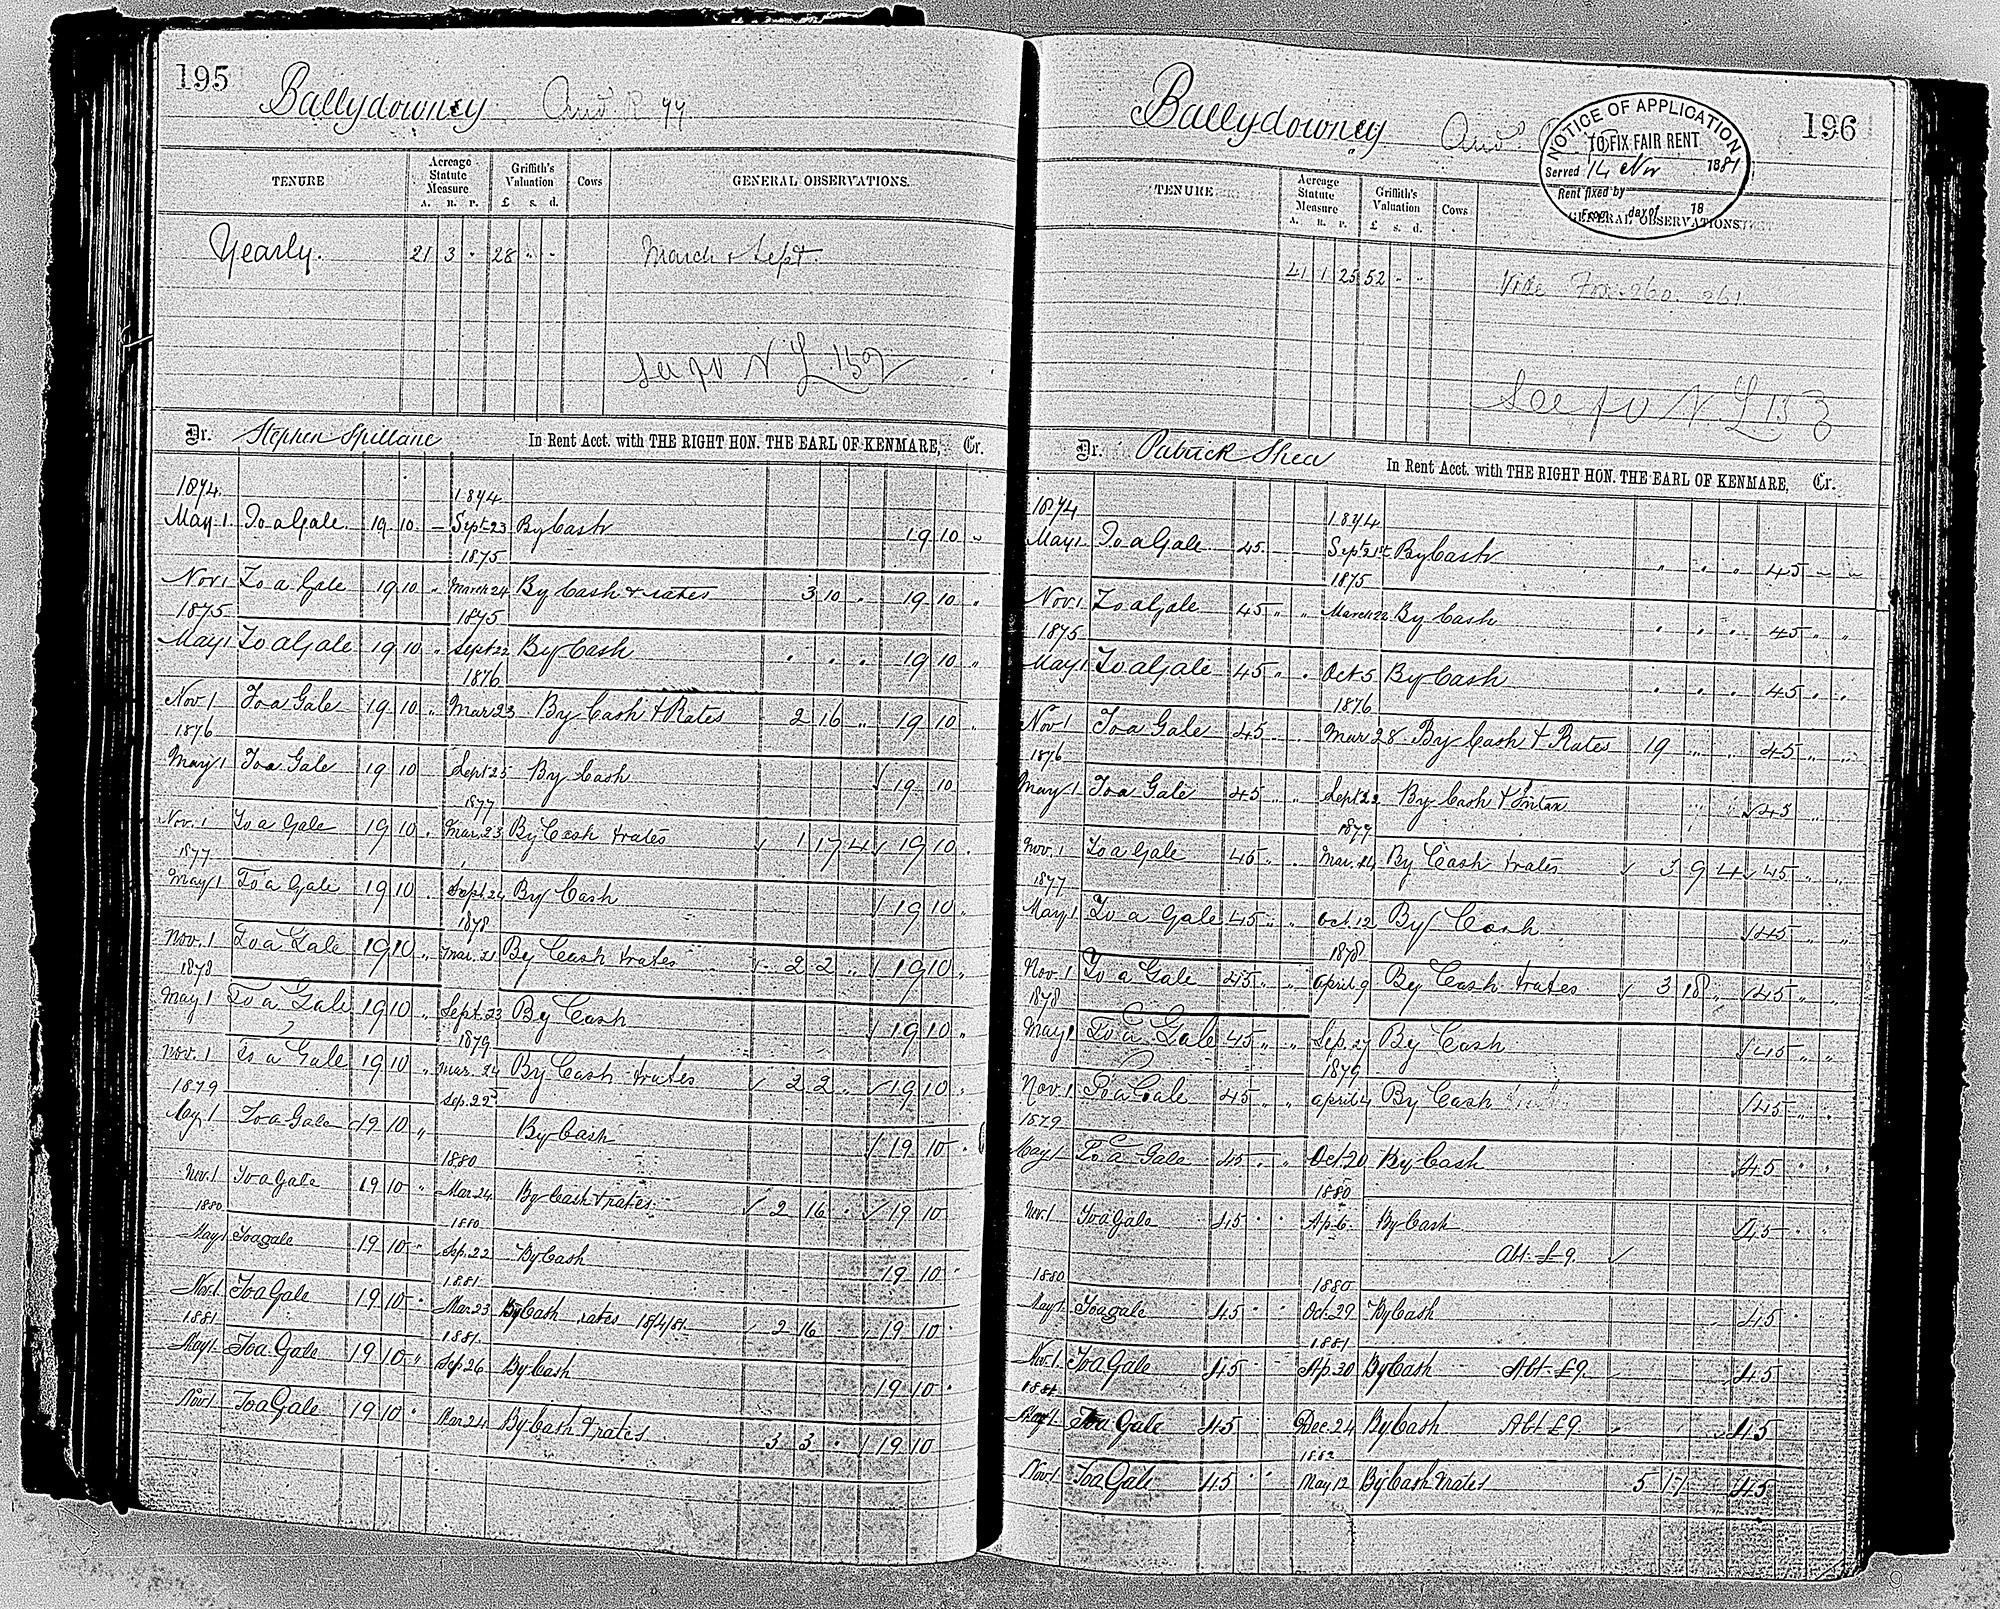 195
Ballydowney
TENURE
Acreage Statute Measure
A. R. P.
Griffith's Valuation
£ s. d.
Cows
GENERAL OBSERVATIONS.
Yearly. 21 3 . 28 . . March & Sept.
N L 152
Dr. Stephen Spillane In Rent Acct. with THE RIGHT HON. THE EARL OF KENMARE, Cr.
1874. 1874
May 1 To a Gale 19 10 — Sept 23 By Cash 19 10 "
1875
Nov 1 To a Gale 19 10 " March 24 By Cash & rates 3 10 " 19 10 "
1875 1875
May 1 To a Gale 19 10 " Sept 22 By Cash . . . 19 10 "
1876
Nov 1 To a Gale 19 10 " Mar 23 By Cash & Rates 2 16 " 19 10 "
1876
May 1 To a Gale 19 10 Sept 25 By Cash √ 19 10
1877
Nov. 1 To a Gale 19 10 . Mar. 23 By Cash & rates √ 1 17 4 √ 19 10 .
1877
May 1 To a Gale 19 10 . Sept. 24 By Cash √ 19 10 "
1878
Nov. 1 To a Gale 19 10 " Mar. 21 By Cash & rates √ 2 2 " √ 19 10 "
1878
May 1 To a Gale 19 10 " Sept. 23 By Cash √ 19 10 "
1879
Nov. 1 To a Gale 19 10 " Mar. 24 By Cash & rates √ 2 2 " √ 19 10 "
1879 Sep. 22
May 1 To a Gale 19 10 " By Cash √ 19 10 "
1880
Nov 1 To a Gale 19 10 " Mar 24 By Cash & rates √ 2 16 " √ 19 10
1880 1880
May 1 To a gale 19 10 " Sep. 22 By Cash 19 10 "
1881
Nov. 1 To a Gale 19 10 " Mar. 23 By Cash rates 18/4/81 √ 2 16 √ 19 10 "
1881 1881
May 1 To a Gale 19 10 " Sep. 26 By Cash 19 10 "
Nov 1 To a Gale 19 10 " Mar. 24 By Cash & rates 3 3 " √ 19 10
196
Ballydowney
NOTICE OF APPLICATION
TO FIX FAIR RENT
Served 14 Nov 1881
Rent fixed by
From day of 18
TENURE
Acreage Statute Measure
A. R. P.
Griffith's Valuation
£ s. d.
Cows
GENERAL OBSERVATIONS.
41 1 25 52 - - Vide 260 261
See N L 153
Dr. Patrick Shea In Rent Acct. with THE RIGHT HON. THE EARL OF KENMARE, Cr.
1874 1874
May 1 To a Gale 45 Sept 21st By Cash " " " 45 " "
1875
Nov. 1 To a Gale 45 " " March 22 By Cash . . . 45 " "
1875
May 1 To a Gale 45 " . Oct 5 By Cash . . . 45 " "
1876
Nov 1 To a Gale 45 Mar 28 By Cash & Rates 19 " " 45 " "
1876
May 1 To a Gale 45 " " Sept 22 By Cash & √45 "
1877
Nov. 1 To a Gale 45 " . Mar. 24 By Cash & rates √ 3 9 4 √ 45 " "
1877
May 1 To a Gale 45 " " Oct. 12 By Cash √45 " "
1878
Nov. 1 To a Gale 45 " " April 9 By Cash & rates √ 3 18 " √45 " "
1878
May 1 To a Gale 45 " " Sep. 27 By Cash √45 " "
1879
Nov. 1 To a Gale 45 " " April 4 By Cash √45 " "
1879
May 1 To a Gale 45 " " Oct 20 By Cash √45 " "
1880
Nov 1 To a Gale 45 " " Ap. 6 By Cash √45 " "
Abt £9. √
1880 1880
May 1 To a gale 45 " " Oct. 29 By Cash 45 "
1881
Nov. 1 To a Gale 45 " " Ap. 30 By Cash Abt £9. 45 "
1881
May 1 To a Gale 45 " Dec. 24 By Cash Abt £9 45
1882
Nov. 1 To a Gale 45 " " May 12 By Cash & rates 5 17 45